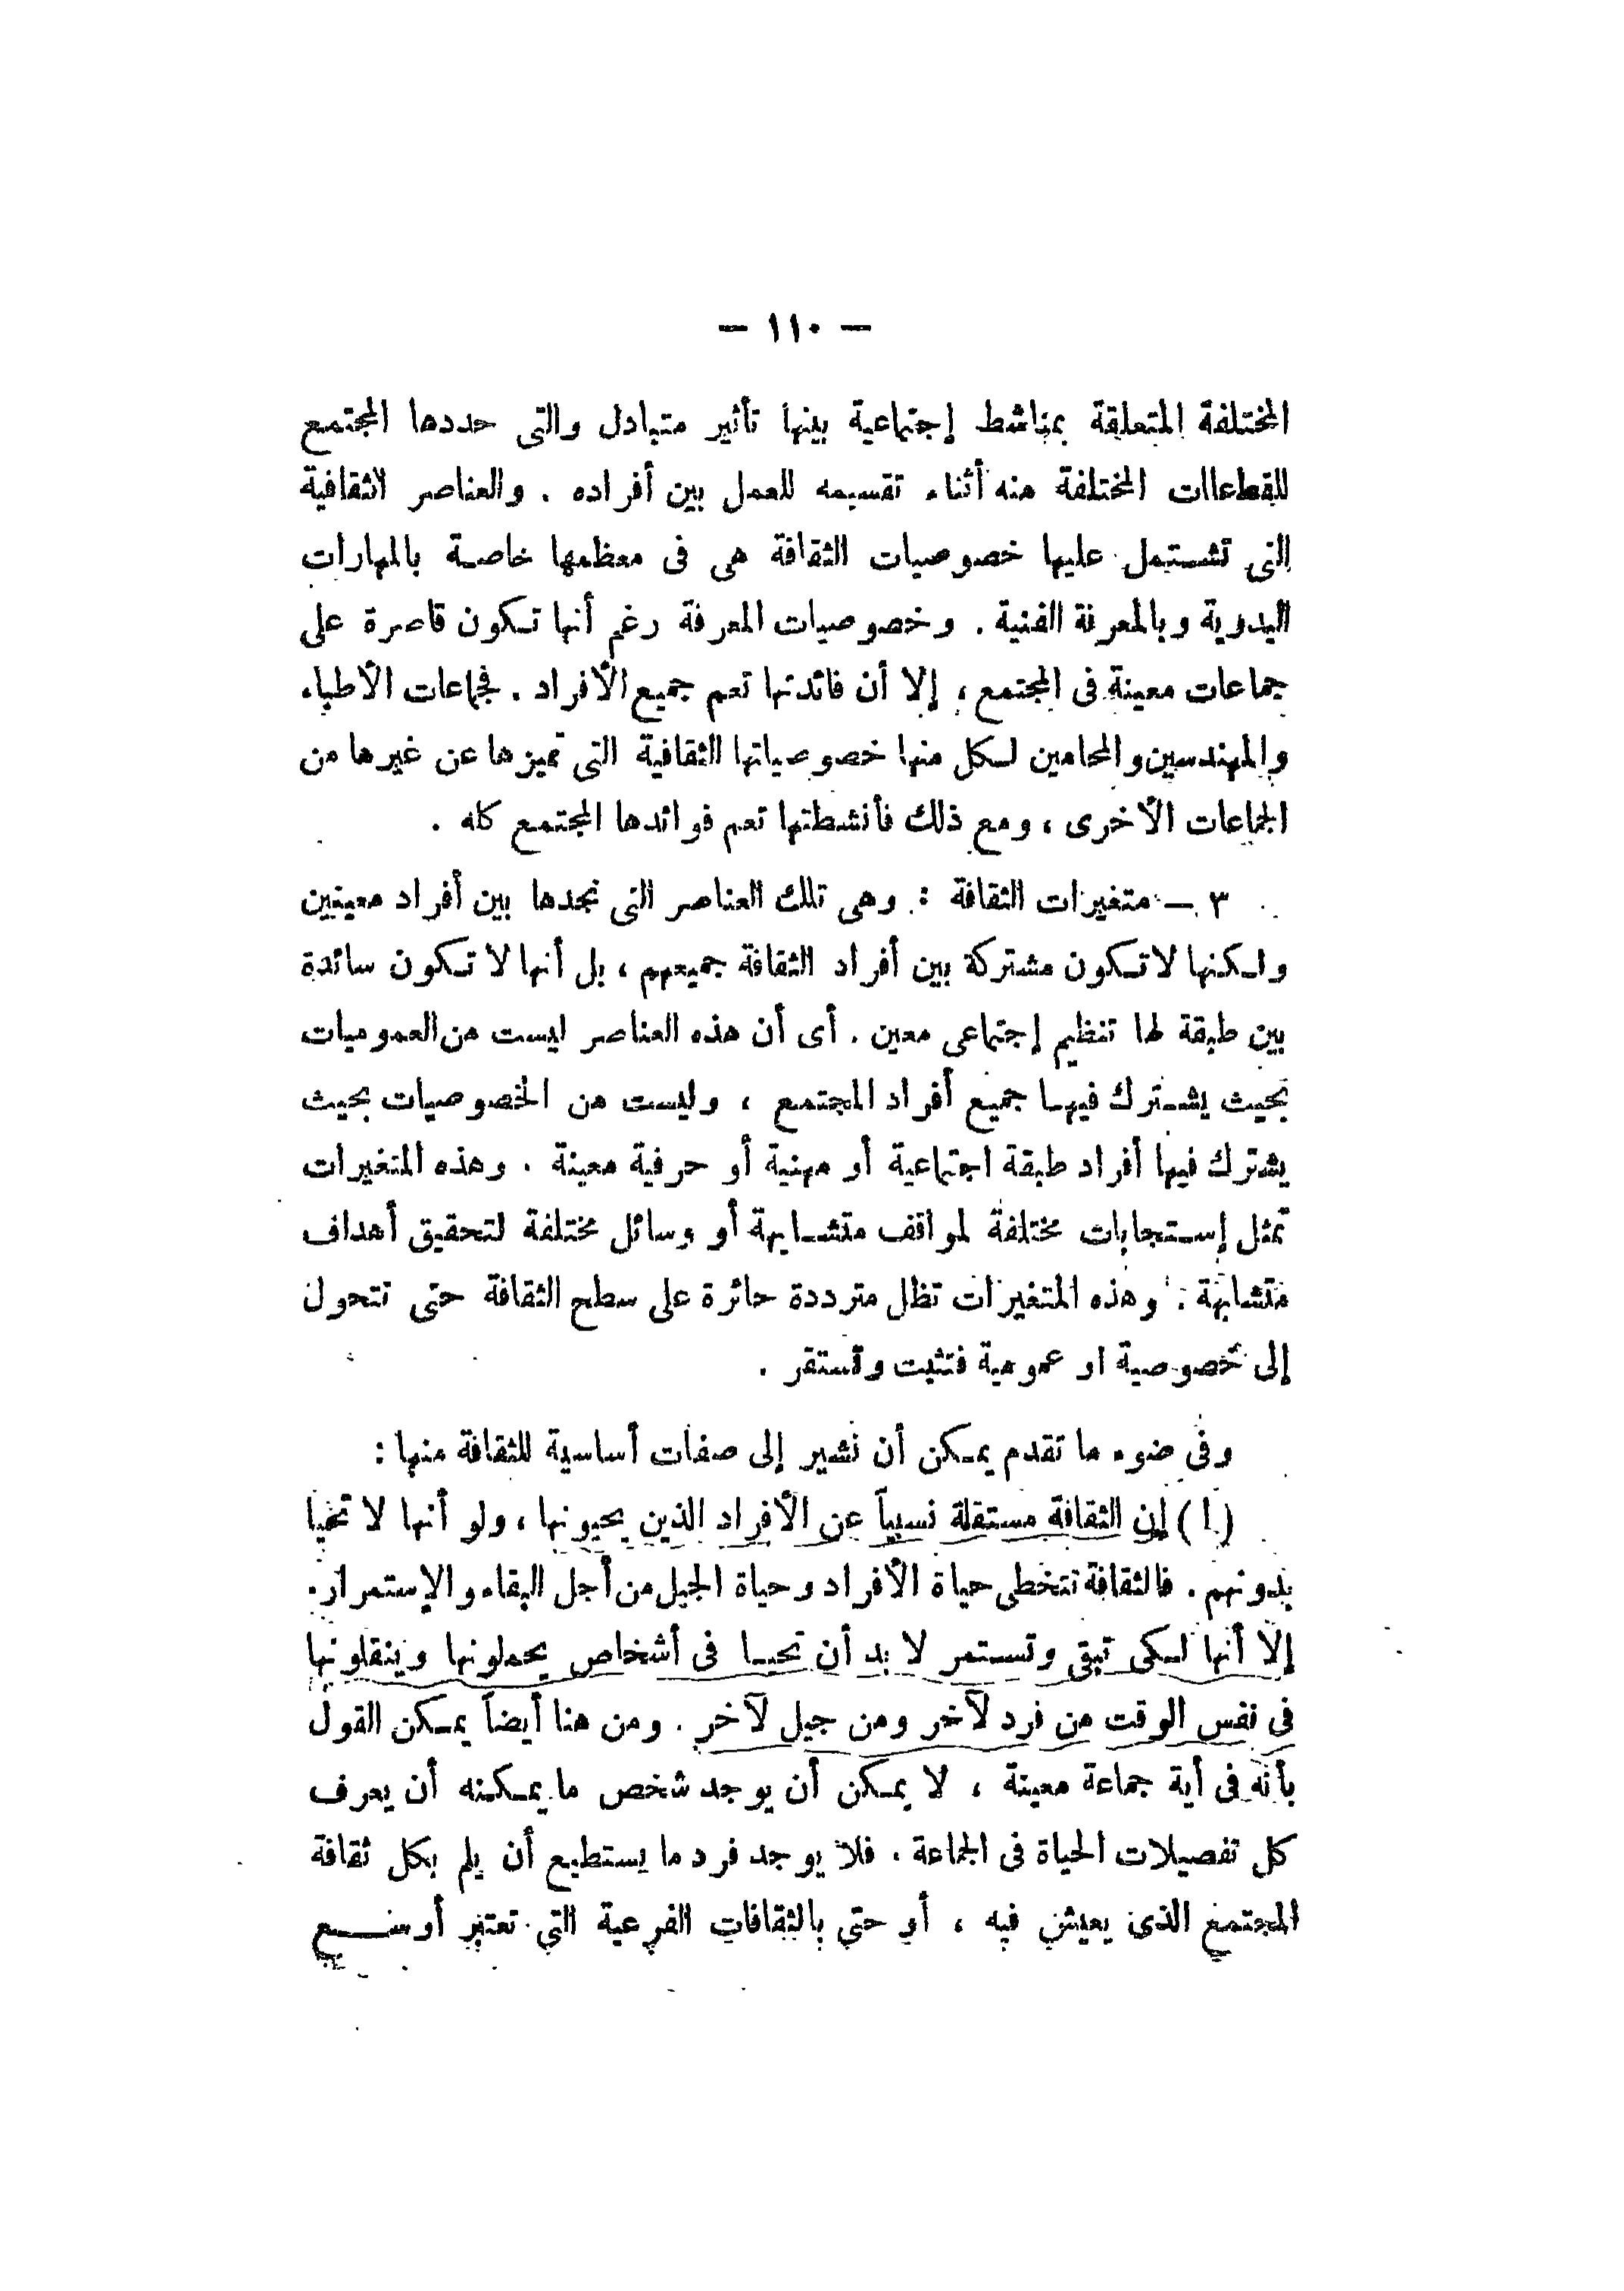 — ١١٠ —
المختلفة المتعلقة بمناشط إجتماعية بينها تأثير متبادل والتى حددها المجتمع
للقطاعات المختلفة منه أثناء تقسيمه للعمل بين أفراده . والعناصر الثقافية
التى تشتمل عليها خصوصيات الثقافة هى فى معظمها خاصة بالمهارات
اليدوية وبالمعرفة الفنية . وخصوصيات المعرفة رغم أنها تكون قاصرة على
جماعات معينة فى المجتمع ، إلا أن فائدتها تعم جميع الأفراد . فجماعات الأطباء
والمهندسين والمحامين لكل منها خصوصياتها الثقافية التى تميزها عن غيرها من
الجماعات الأخرى ، ومع ذلك فأنشطتها تعم فوائدها المجتمع كله .
٣ — متغيرات الثقافة : وهى تلك العناصر التى نجدها بين أفراد معينين
ولكنها لا تكون مشتركة بين أفراد الثقافة جميعهم ، بل أنها لا تكون سائدة
بين طبقة لها تنظيم إجتماعى معين . أى أن هذه العناصر ليست من العموميات
بحيث يشترك فيها جميع أفراد المجتمع ، وليست من الخصوصيات بحيث
يشترك فيها أفراد طبقة اجتماعية أو مهنية أو حرفية معينة . وهذه المتغيرات
تمثل إستجابات مختلفة لمواقف متشابهة أو وسائل مختلفة لتحقيق أهداف
متشابهة . وهذه المتغيرات تظل مترددة حائرة على سطح الثقافة حتى تتحول
إلى خصوصية او عمومية فتثبت وتستقر .
وفى ضوء ما تقدم يمكن أن نشير إلى صفات أساسية للثقافة منها :
( ا ) إن الثقافة مستقلة نسبياً عن الأفراد الذين يحيونها ، ولو أنها لا تحيا
بدونهم . فالثقافة تتخطى حياة الأفراد وحياة الجيل من أجل البقاء والإستمرار .
إلا أنها لكى تبقى وتستمر لا بد أن تحيا فى أشخاص يحملونها وينقلونها
فى نفس الوقت من فرد لآخر ومن جيل لآخر . ومن هنا أيضاً يمكن القول
بأنه فى أية جماعة معينة ، لا يمكن أن يوجد شخص ما يمكنه أن يعرف
كل تفصيلات الحياة فى الجماعة . فلا يوجد فرد ما يستطيع أن يلم بكل ثقافة
المجتمع الذى يعيش فيه ، أو حتى بالثقافات الفرعية التى تعتبر أوسع